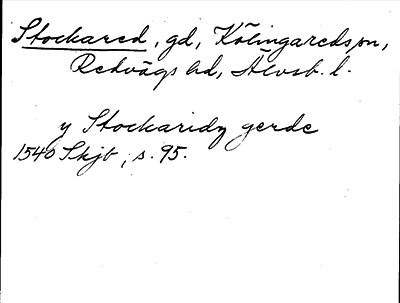 Stockared, gd, Kölingareds sn,
Redvägs hd, Älvsb. l.
y Stockaridz gerde
1540 Skjb, s. 95.